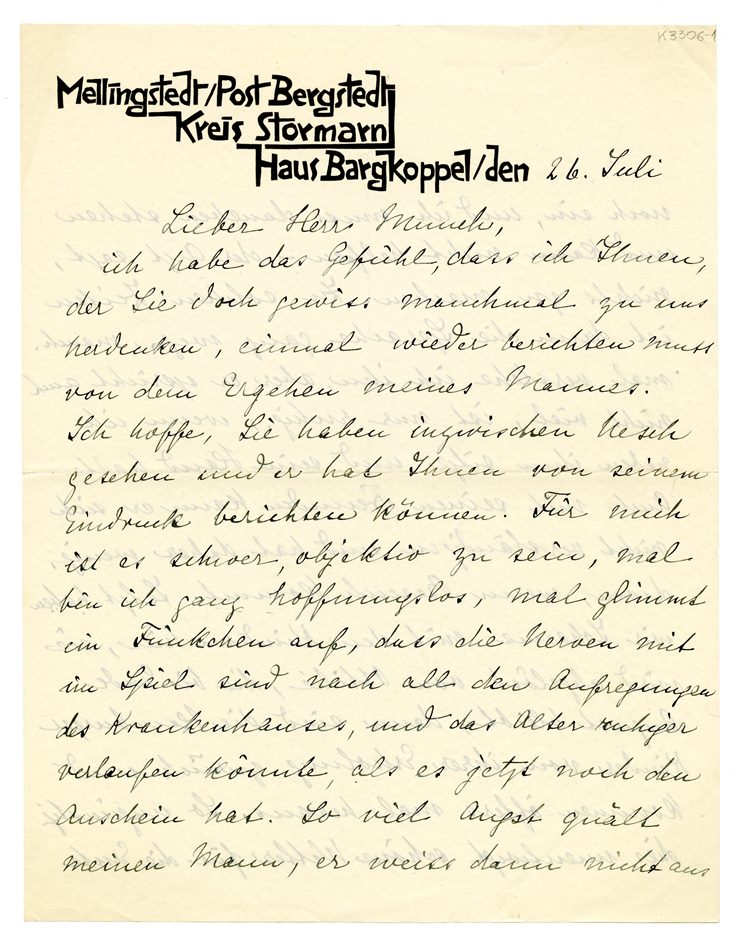 K3306-1
Mellingstedt/Post Bergstedt
Kreis Stormarn
Haus Bargkoppel/den 26. Juli
Lieber Herr Munch,
ich habe das Gefühl, dass ich Ihnen,
der Sie doch gewiss manchmal zu uns
herdenken, einmal wieder berichten muss
von dem Ergehen meines Mannes.
Ich hoffe, Sie haben inzwischen Nesch
gesehen und er hat Ihnen von seinem
Eindruck berichten können. Für mich
ist es schwer, objektiv zu sein, mal
bin ich ganz hoffnungslos, mal glimmt
ein Fünkchen auf, dass die Nerven mit
im Spiel sind nach all den Aufregungen
des Krankenhauses, und das Alter ruhiger
verlaufen könnte, als es jetzt noch den
Anschein hat. So viel Angst quält
meinen Mann, er weiss dann nicht aus